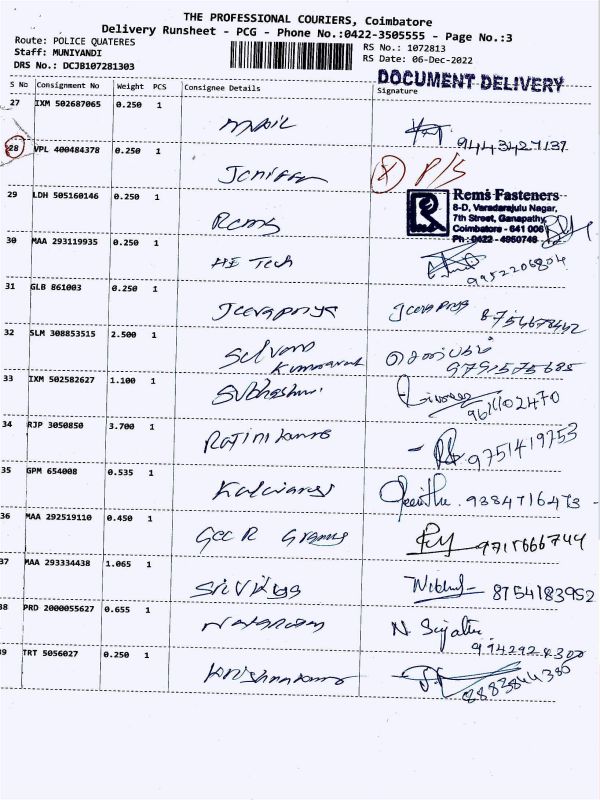 THE PROFESSIONAL COURIERS, Coimbatore
Delivery Runsheet - PCG - Phone No.:0422-3505555 - Page No.:3
Route: POLICE QUATERES
RS No.: 1072813
Staff: MUNIYANDI
RS Date: 06-Dec-2022
DRS No.: DCJB107281303
DOCUMENT DELIVERY
S No Consignment No Weight PCS Consignee Details Signature
27 IXM 502687065 0.250 1
MAIL 9443427137
28 VPL 400484378 0.250 1
Jeniffer P/S
29 LDH 505160146 0.250 1
Rems
Remi Fasteners
8-D, Varadarajulu Nagar,
7th Street, Ganapathy,
Coimbatore - 641 006
Ph : 0422 - 4960746
30 MAA 293119935 0.250 1
HI Tech 9952206804
31 GLB 861003 0.250 1
Jeevapriya Jeevapriya 8754678442
32 SLM 308853515 2.500 1
Selvam
Kumaravel 9791575685
33 IXM 502582627 1.100 1
Subhashini
34 RJP 3050850 3.700 1
Rajini kumar 9751419753
35 GPM 654008 0.535 1
9384716473
36 MAA 292519110 0.450 1
37 MAA 293334438 1.065 1
SriVidya 8754183952
38 PRD 2000055627 0.655 1
Natarajan N. Sujatha
39 TRT 5056027 0.250 1
Krishnakumar 8883844380